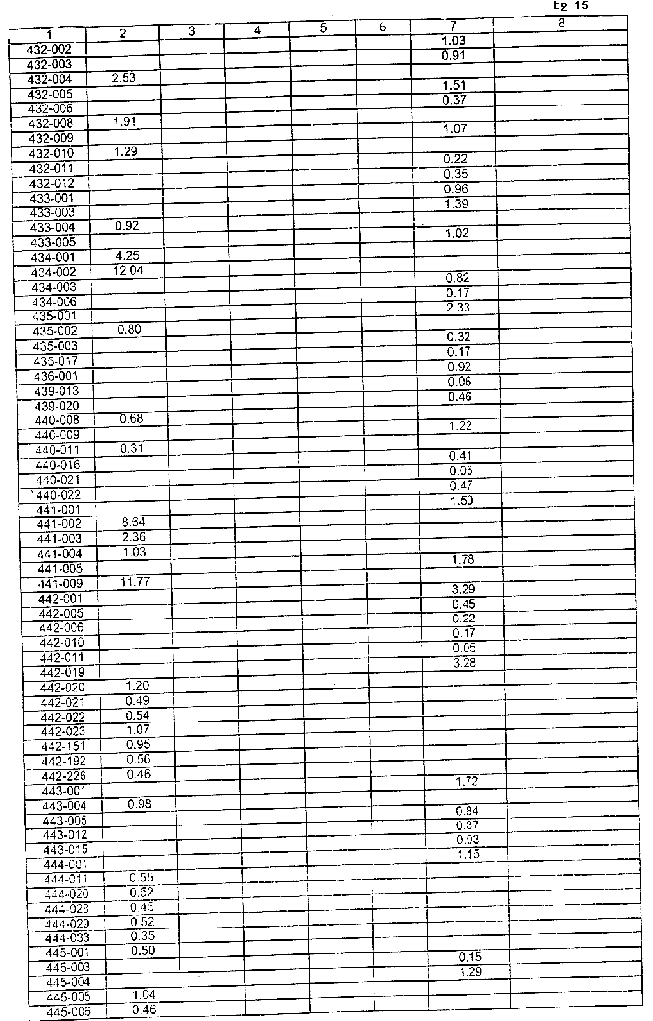 15
1 2 3 4 5 6 7 8
432-002 1.03
432-003 0.91
432-004 2.53
432-005 1.51
432-006 0.37
432-008 1.91
432-009 1.07
432-010 1.29
432-011 0.22
432-012 0.35
433-001 0.96
433-003 1.39
433-004 0.92
433-005 1.02
434-001 4.25
434-002 12.04
434-003 0.82
434-006 0.17
435-001 2.33
435-002 0.80
435-003 0.32
435-017 0.17
436-001 0.92
439-013 0.06
439-020 0.46
440-008 0.68
440-009 1.22
440-011 0.31
440-016 0.41
440-021
440-022 0.47
441-001 1.50
441-002 8.34
441-003 2.36
441-004 1.03
441-005 1.78
441-009 11.77
442-001 3.29
442-005 0.45
442-006 0.22
442-010 0.17
442-011
442-019 3.28
442-020 1.20
442-021 0.49
442-022 0.54
442-023 1.07
442-151 0.95
442-192 0.56
442-226 0.46
443-001 1.72
443-004 0.98
443-005 0.84
443-012
443-015 0.03
444-001 1.15
444-011 0.55
444-020 0.52
444-023
444-029 0.52
444-033 0.35
445-001 0.50
445-003 0.15
445-004 1.29
445-005 1.04
445-006 0.46